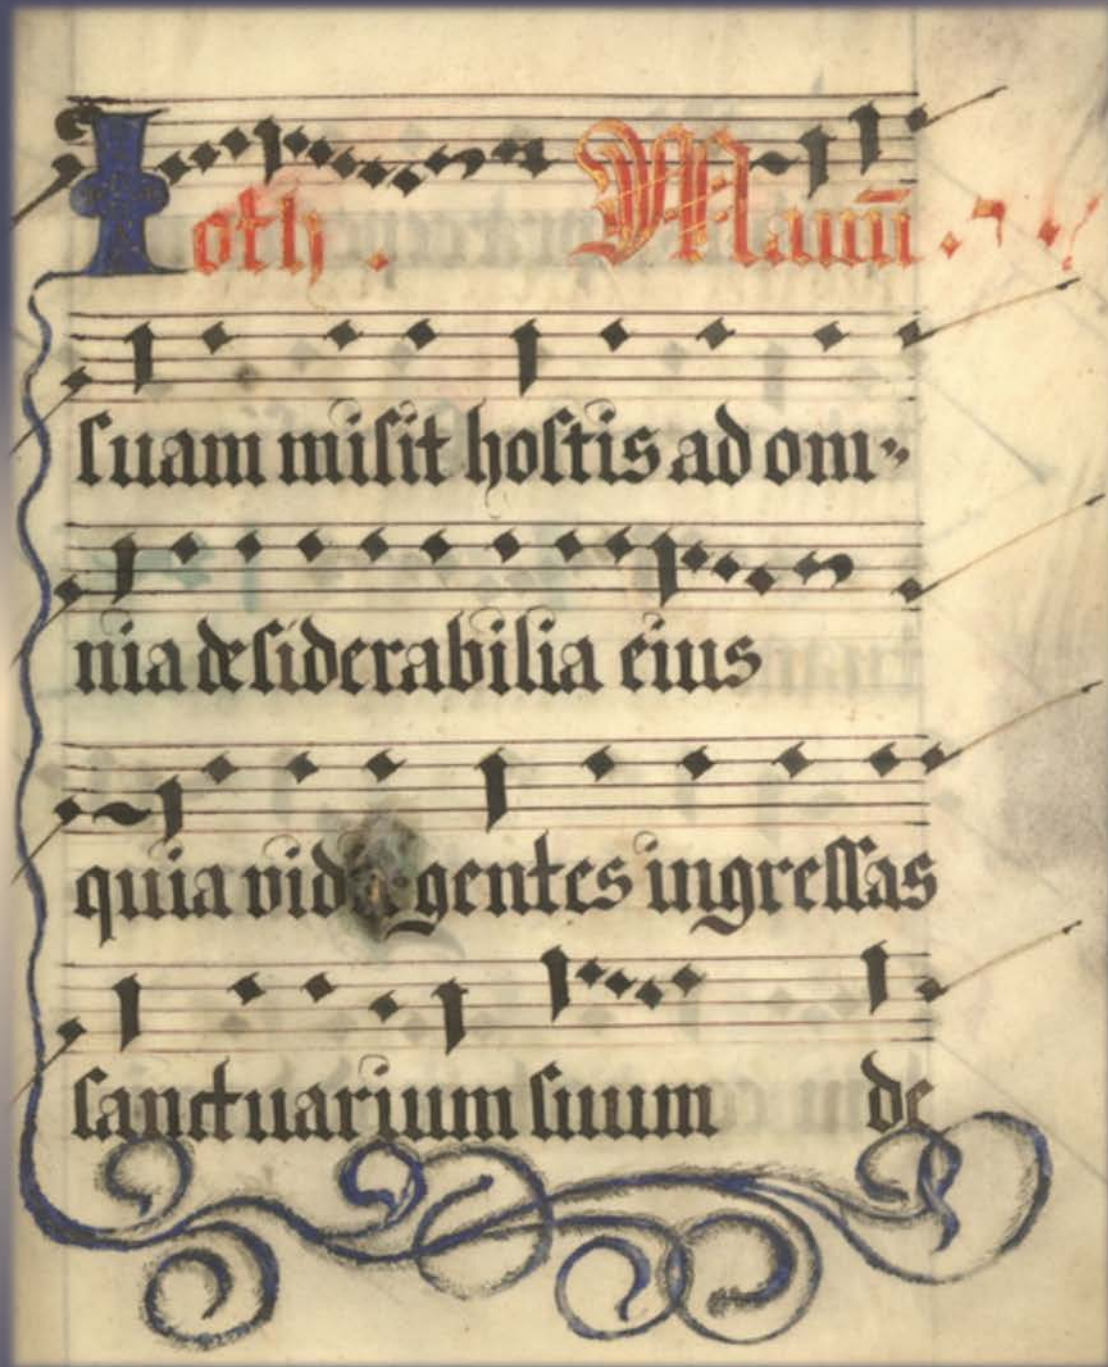 Ioth . Manū .
suam misit hostis ad om⸗
nia desiderabilia eius
quia vid gentes ingressas
sanctuarium suum de